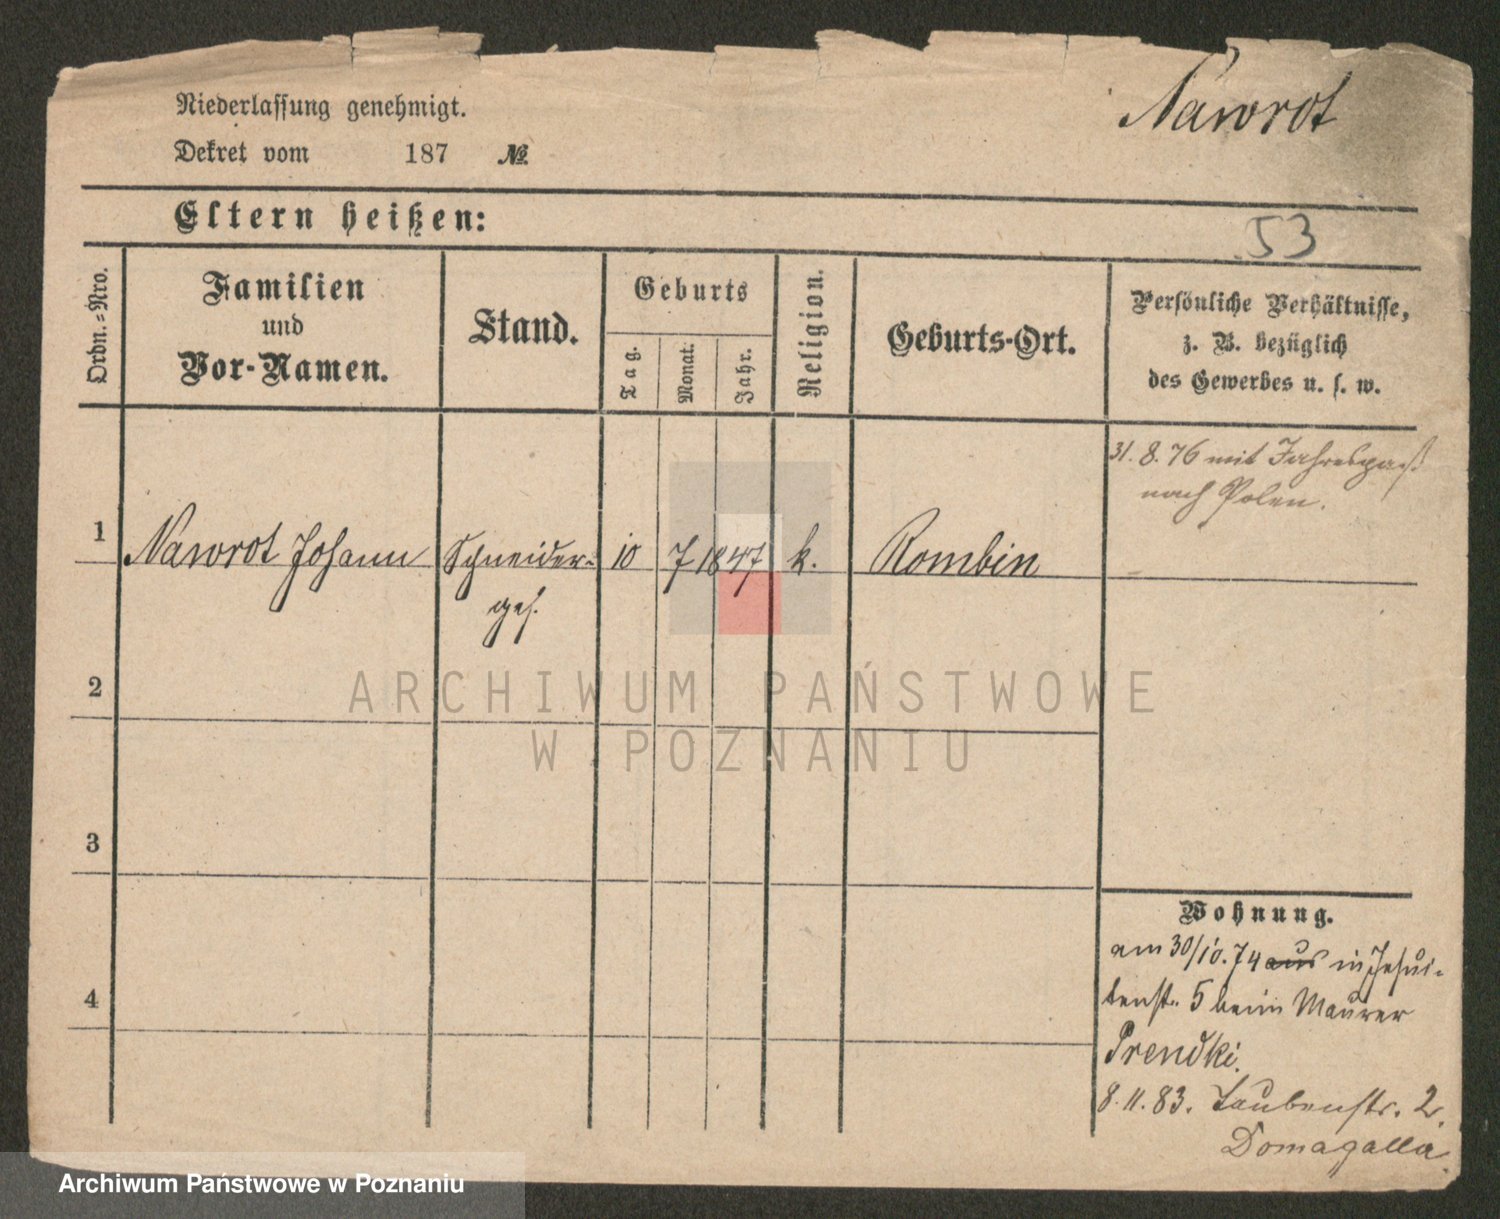 Niederlassung genehmigt.
Nawrot
Dekret vom 187 №
Eltern heißen:
53
Ordn.-Nro.
Familien
und
Vor-Namen.
Stand.
Geburts
Tag.
Monat.
Jahr.
Religion.
Geburts-Ort.
Persönliche Verhältnisse,
z. B. bezüglich
des Gewerbes u. s. w.
31. 8. 76 mit Jahrespaß
nach Polen.
1 Nawrot Johann Schneider- 10 7 1847 k. Rombin
ges.
2
ARCHIWUM PAŃSTWOWE
W POZNANIU
3
Wohnung.
am 30/10. 74 aus in Jesui-
4
tenstr. 5 beim Maurer
Prendki.
8. 11. 83. Taubenstr. 2.
Domagalla.
Archiwum Państwowe w Poznaniu